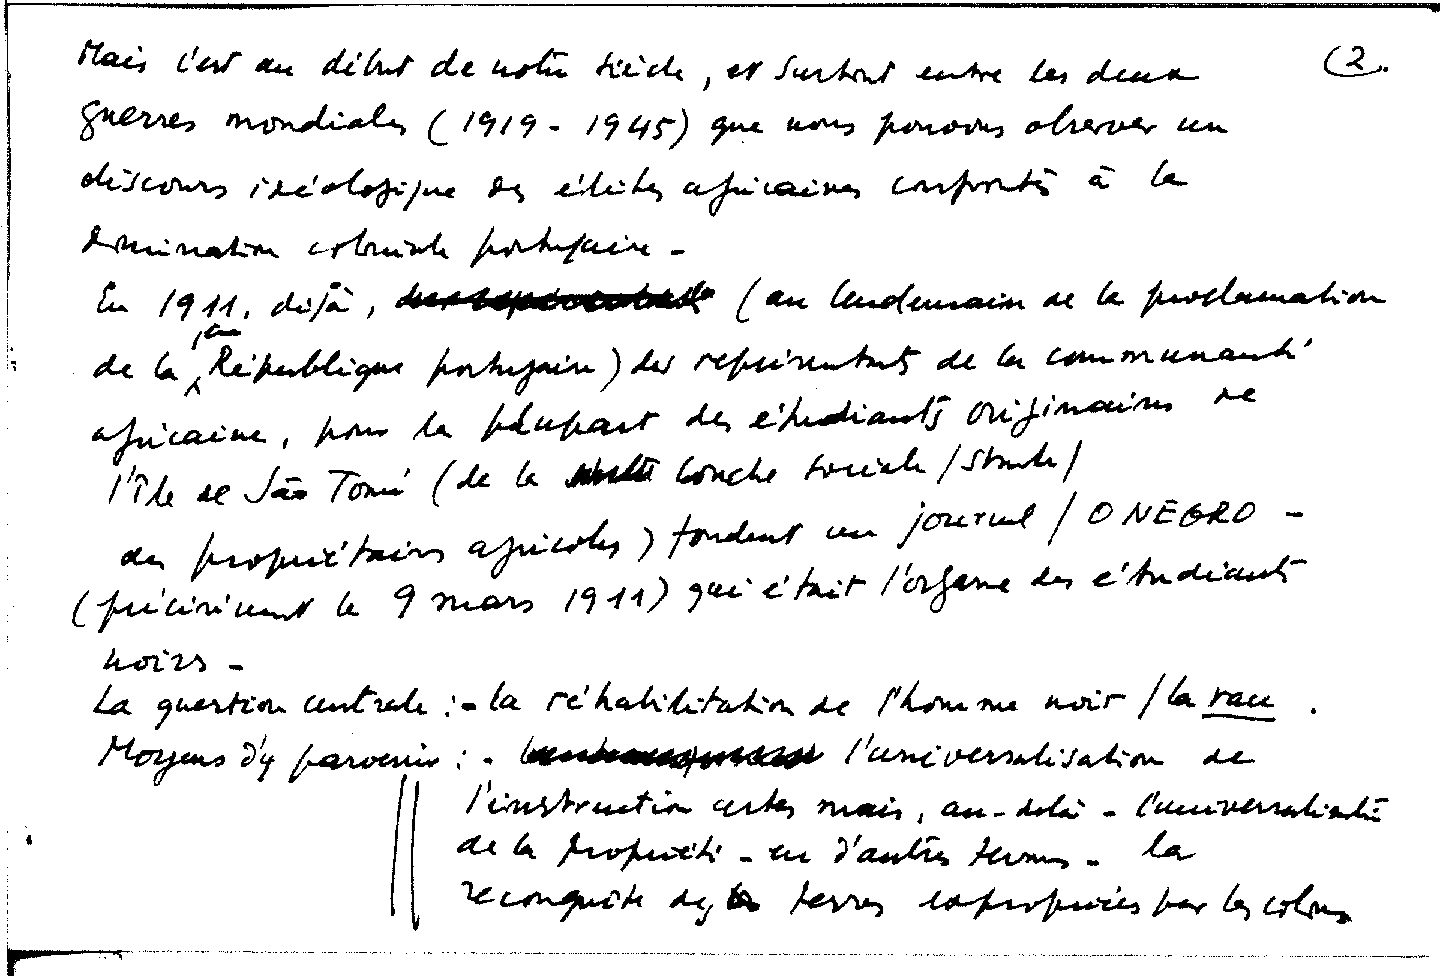 Mais c'est au début de notre siècle, et surtout entre les deux (2.
guerres mondiales (1919 - 1945) que nous pouvons observer un
discours idéologique des élites africaines confrontés à la
domination coloniale portugaise -
En 1911, déjà, (au lendemain de la proclamation
de la 1ère République portugaise) des représentants de la communauté
africaine, pour la plupart des étudiants originaires de
l'île de São Tomé (de la couche sociale / strate /
des propriétaires agricoles) fondent un journal / O NEGRO -
(précisément le 9 mars 1911) qui était l'organe des étudiants
noirs -
La question centrale : - la réhabilitation de l'homme noir / la race .
Moyens d'y parvenir : - l'universalisation de
l'instruction certes mais, au-delà - l'universalité
de la propriété - en d'autres termes - la
reconquête des terres expropriées par les colons